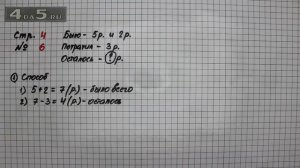 4DA5.RU
Стр. 4
№ 6
Было - 5р. и 2р.
Потратил - 3р.
Осталось - ? р.
① Способ
1) 5+2=7(р) - было всего
2) 7-3=4(р) - осталось